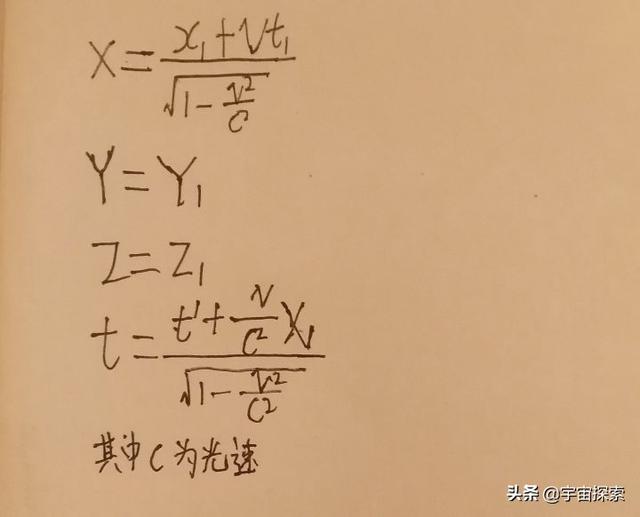 X = \frac{x_1 + Vt_1}{\sqrt{1 - \frac{V^2}{C}}}
Y = Y_1
Z = Z_1
t = \frac{t' + \frac{V}{C^2} X_1}{\sqrt{1 - \frac{V^2}{C^2}}}
其中C为光速
头条 @宇宙探索